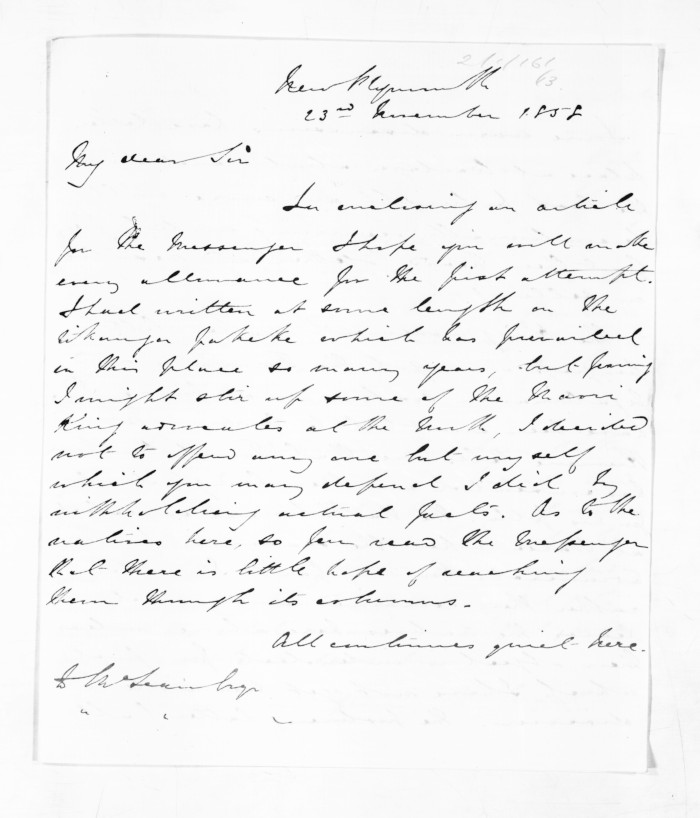 New Plymouth
23rd November 1858
My dear Sir
In enclosing an article
for the Messenger I hope you will make
every allowance for the first attempt.
I had written at some length on the
tikanga
in this place so many years, but fearing
I might stir up some of the Maori
King advocates at the north, I decided
not to offend any one but myself
which you may depend I did by
withholding actual facts. As to the
natives here, so few read the Messenger
that there is little hope of reaching
them through its columns.
All continues quiet here.
D McLean Esqr
" " "